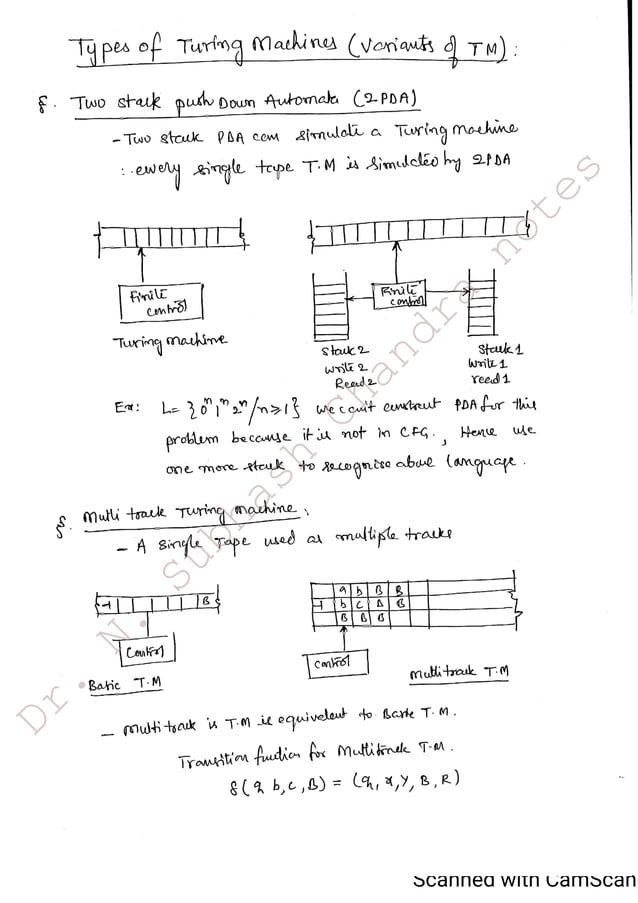 Types of Turing Machines (Variants of TM):
§. Two stack push Down Automata (2PDA)
- Two stack PDA can simulate a Turing machine
∴ every single tape T.M is simulated by 2PDA
Finite control
Turing machine
Finite control
Stack 2
write 2
Read 2
Stack 1
write 1
read 1
Ex: L = {0ⁿ1ⁿ2ⁿ/n≥1} we can't construct PDA for this
problem because it is not in CFG., Hence use
one more stack to recognise above language.
§. Multi track Turing machine:
- A single Tape used as multiple tracks
B
Control
Basic T.M
a b B B
b c B
B B B
Control
Multitrack T.M
- Multitrack is T.M is equivalent to Basic T.M.
Transition function for Multitrack T.M.
δ(q b,c,B) = (q, x,y,B,R)
Dr. N. Subhash Chandra notes
Scanned with CamScan